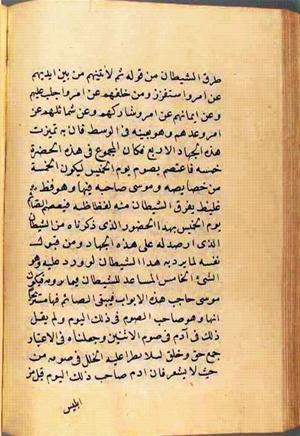 طرق الشيطان من قوله ثم لآتينهم من بين ايديهم
عن امر واستفزز ومن خلفهم عن امر واجلب عليهم
وعن ايمانهم عن امر وشاركهم وعن شمائلهم عن
امر وعدهم وهو بعينه في الوسط قان به تميزت
هذه الجهات الاربع فكان المجموع في هذه الحضرة
خمسة فاعتصم بصوم يوم الخميس ليكون الخمسة
من خصايصه وموسى صاحبه فيها وهو فظ
غليظ يفرق الشيطان منه لفظاظته فيعصم الصايم
يوم الخميس بهذا الحضور الذى ذكرناه من الشيطان
الذى ارصد له على هذه الجهات ومن
نفسه لما يريد به هذا الشيطان لو ورد عليه وهو
الشئ الخامس المساعد للشيطان فيما يرومه فيكون
موسى حاجب هذه الابواب فيبقى الصائم فيها مستريحا
انها وهو صاحب الصوم في ذلك اليوم ولم يفعل
ذلك في آدم في صوم الاثنين وجعلناه في الاعتبار
جمع حق وخلق لئلا يطرا عليه الخلل في صومه من
حيث لا يشعر فان ادم صاحب ذلك اليوم قبل من
ابليس